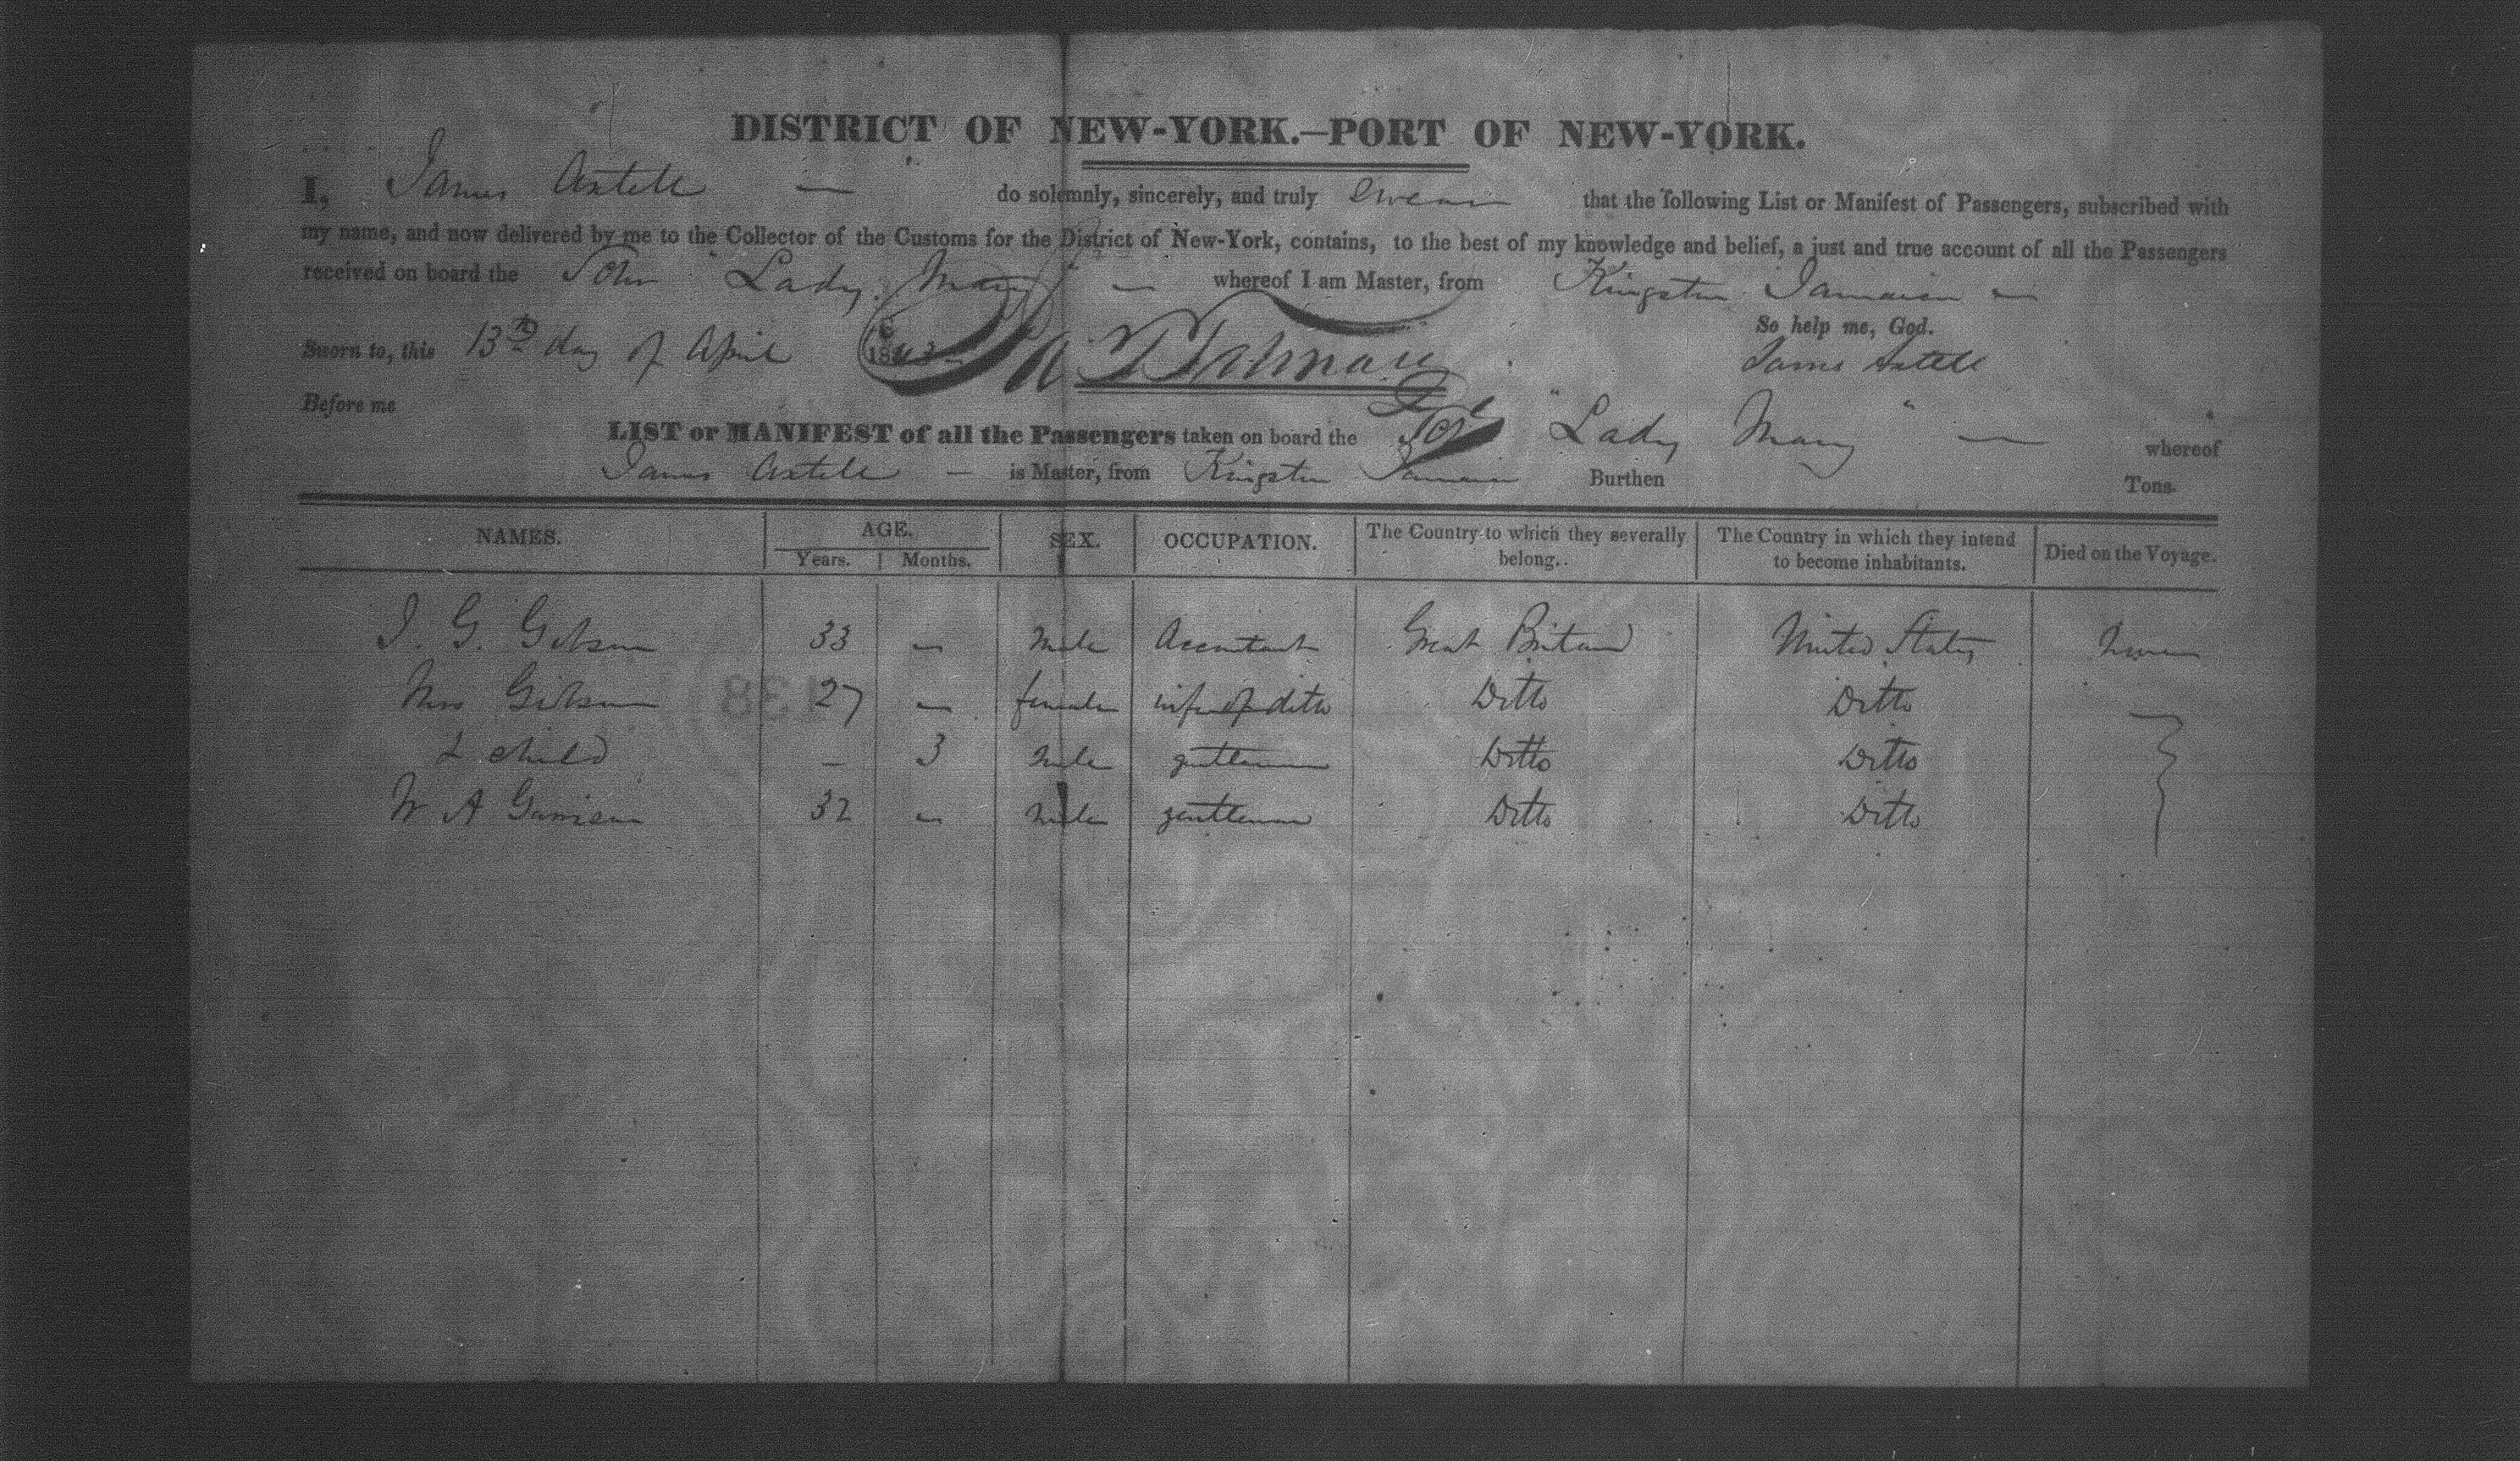 DISTRICT OF NEW-YORK.—PORT OF NEW-YORK.
I, James Axtell — do solemnly, sincerely, and truly swear that the following List or Manifest of Passengers, subscribed with
my name, and now delivered by me to the Collector of the Customs for the District of New-York, contains, to the best of my knowledge and belief, a just and true account of all the Passengers
received on board the Schr "Lady Mary" — whereof I am Master, from Kingston Jamaica —
So help me, God.
Sworn to, this 13th day of April 184 James Axtell
Before me
LIST or MANIFEST of all the Passengers taken on board the Schr "Lady Mary" — whereof
James Axtell — is Master, from Kingston Jamaica Burthen Tons.
NAMES. AGE. SEX. OCCUPATION. The Country to which they severally belong. The Country in which they intend to become inhabitants. Died on the Voyage.
Years. Months.
J. G. Gibson 33 — Male Accountant Great Britain United States None
Mrs Gibson 27 — female wife of ditto Ditto Ditto
& child — 3 Male gentleman Ditto Ditto
W A Garrison 32 — Male gentleman Ditto Ditto